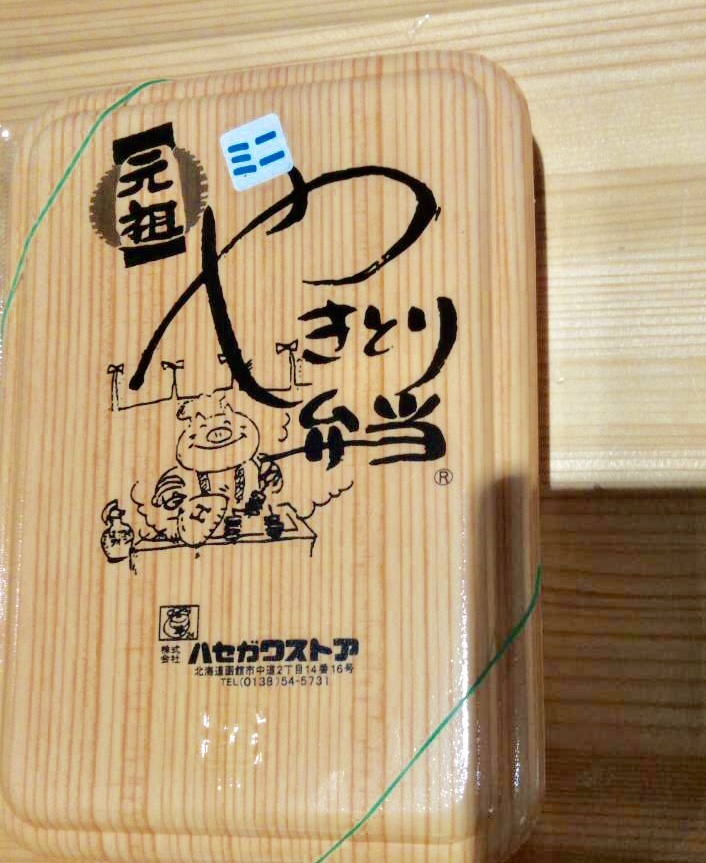 元祖
ミニ
やきとり
弁当
®
株式会社 ハセガワストア
北海道函館市中道2丁目14番16号
TEL(0138)54-5731